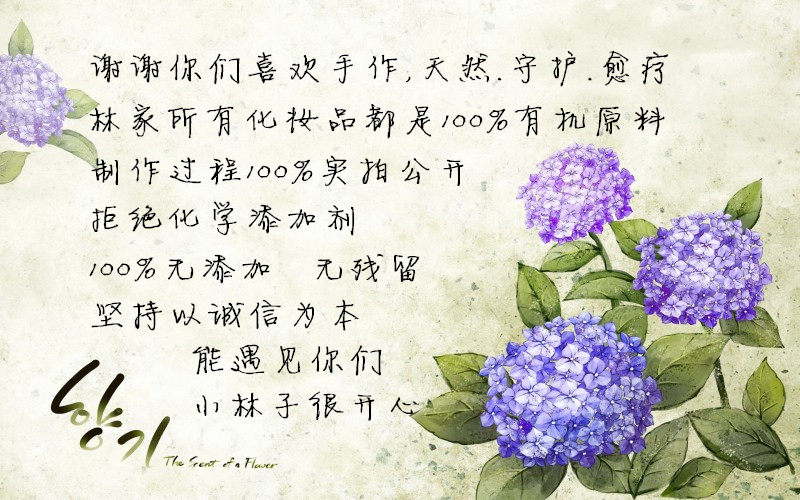 谢谢你们喜欢手作,天然.守护.愈疗
林家所有化妆品都是100%有机原料
制作过程100%实拍公开
拒绝化学添加剂
100%无添加 无残留
坚持以诚信为本
能遇见你们
小林子很开心
향기
The Scent of a Flower